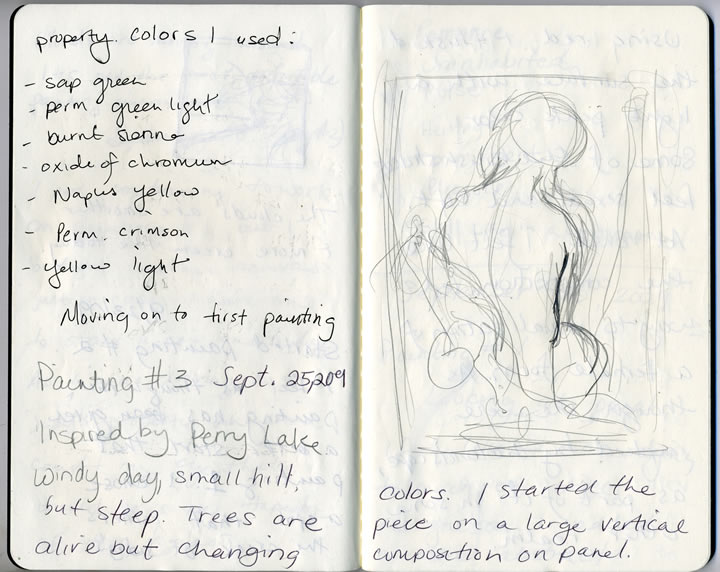 property. Colors I used:
- sap green
- perm green light
- burnt sienna
- oxide of chromium
- Naples yellow
- Perm. crimson
- yellow light
Moving on to first painting
Painting #3 Sept. 25, 2009
Inspired by Perry Lake
windy day, small hill,
but steep. Trees are
alive but changing
colors. I started the
piece on a large vertical
composition on panel.